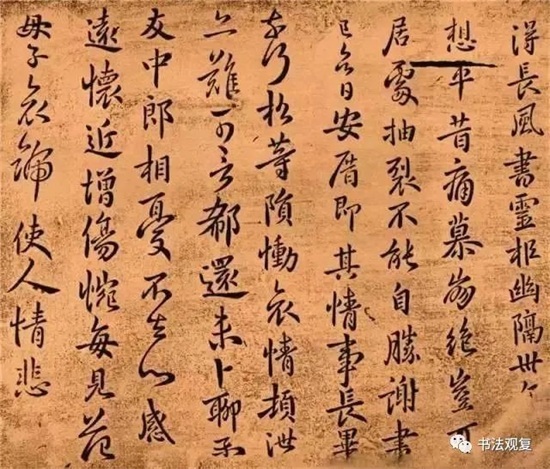 得長風書靈柩幽隔卅
想平昔痛慕崩絕豈可
居處抽裂不能自勝謝書
已日安厝即其情事長畢
奈何松等隕慟哀情頓泄
亦難可言郗還未卜聊示
友中郎相憂不去心感
遠懷近增傷惋每見范
母子哀號使人情悲
书法观复